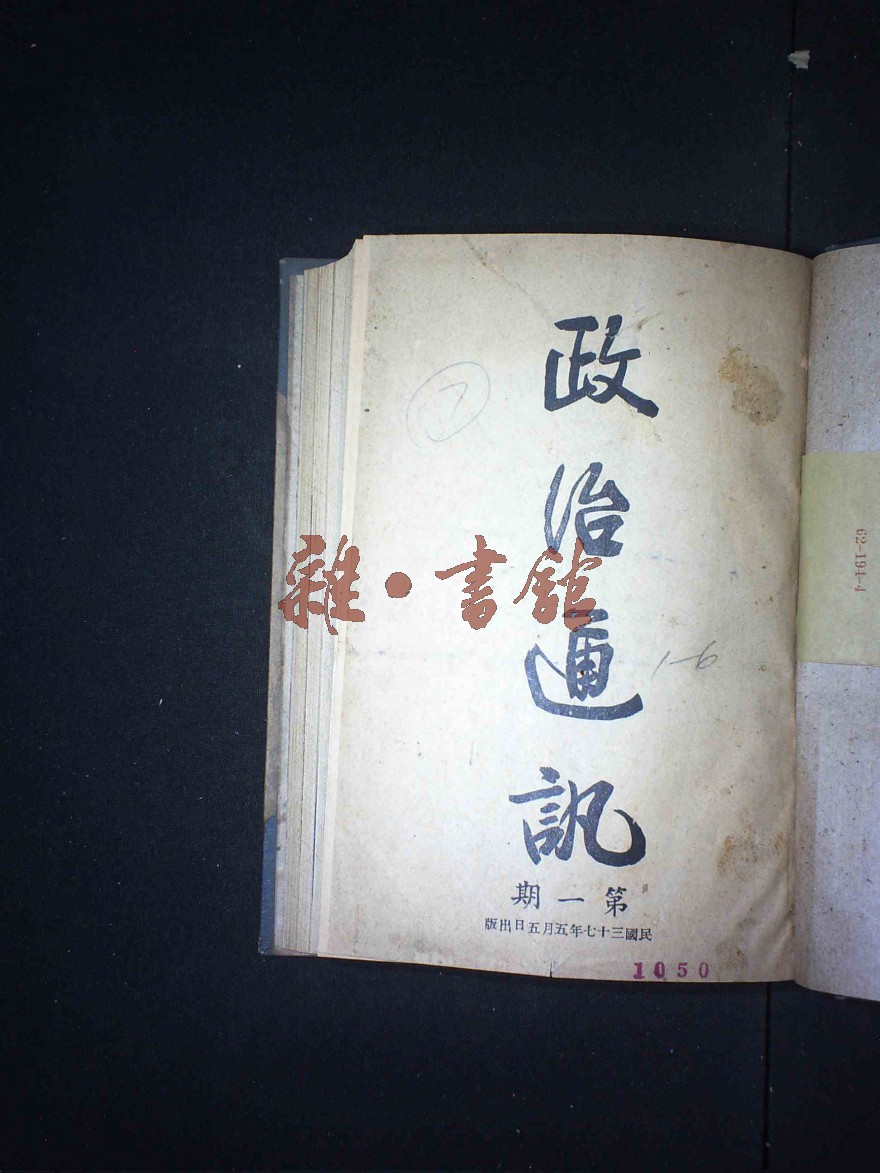 政治通訊
第一期
民國三十七年五月五日出版
1050
7
1-6
雜·書館
62-194-4